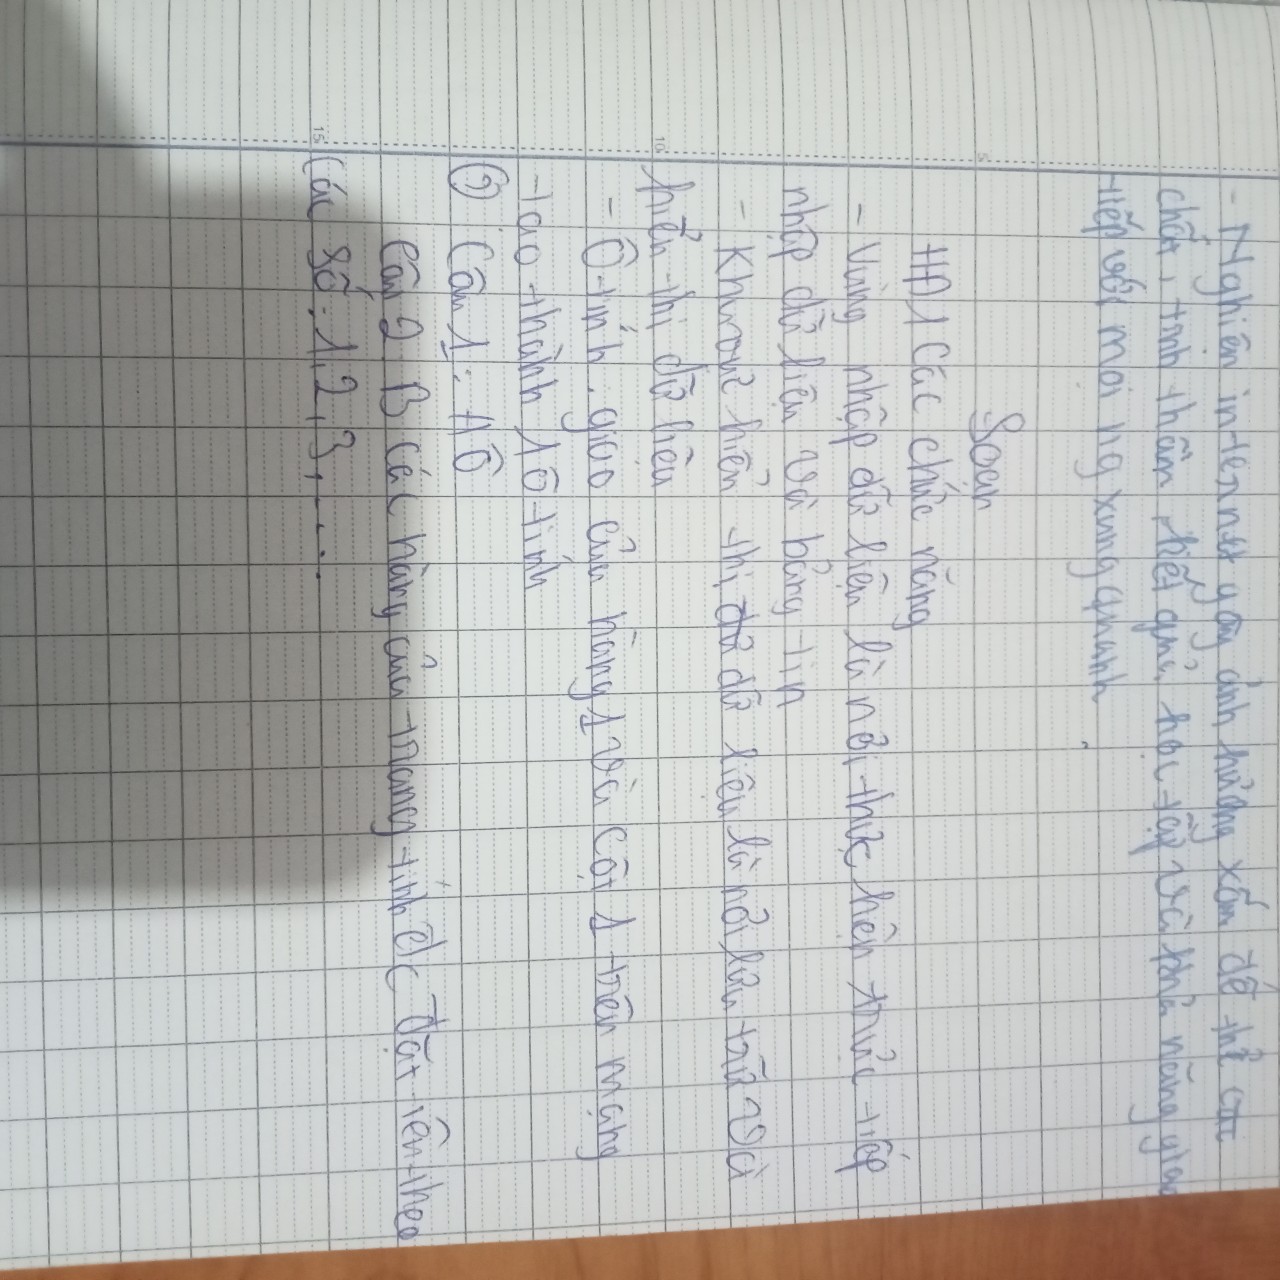 - Nghiện internet gây ảnh hưởng xấm đế thể
chất, tinh thần, kết quả học tập và khả năng giao
tiếp với mọi ng xung quanh
Soạn
HĐ1 Các chức năng
- Vùng nhập dữ liệu là nơi thực hiện trực tiếp
nhập dữ liệu và bảng tin
- Khu vực hiển thị dữ liệu là nơi lưu trữ và
hiển thị dữ liệu
- Ô tính. giao của hàng 1 và cột 1 trên mạng
tạo thành 1 ô tính
? Câu 1: A Ô
Câu 2 B các hàng của trang tính đc đặt tên theo
Các số 1, 2, 3, ....
5
10
15